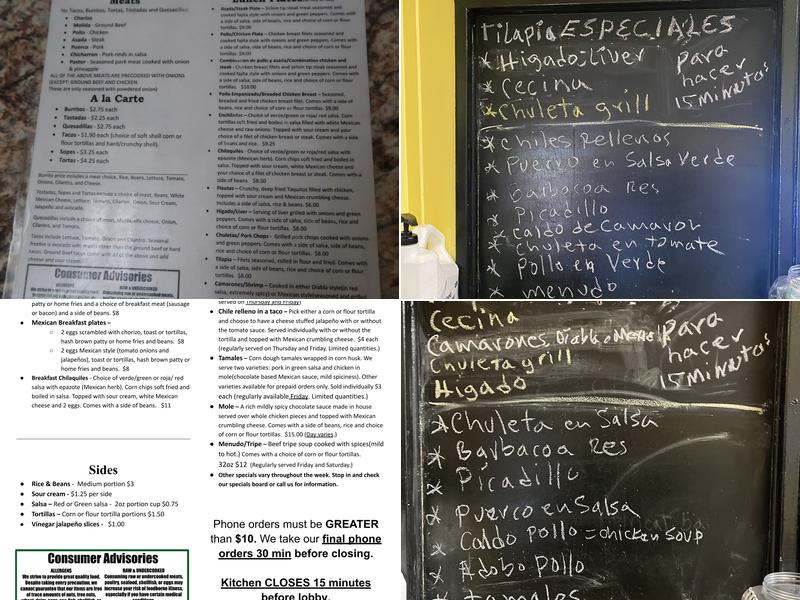 Meats
for Tacos, Burritos, Tortas, Tostadas and Quesadillas
Chorizo
Molida - Ground Beef
Pollo - Chicken
Asada - Steak
Puerco - Pork
Chicharron - Pork rinds in salsa
Pastor - Seasoned pork meat cooked with onion
& pineapple
ALL OF THE ABOVE MEATS ARE PRECOOKED WITH ONIONS
(EXCEPT: GROUND BEEF AND CHICKEN.
These are only seasoned with powdered onion)
A la Carte
Burritos - $2.75 each
Tostadas - $2.25 each
Quesadillas - $2.75 each
Tacos - $1.90 each (choice of soft shell corn or
flour tortillas and hard/crunchy shell).
Sopes - $3.25 each
Tortas - $4.25 each
Burrito price includes a choice of meat, Rice, Beans, Lettuce, Tomato,
Onions, Cilantro, and Cheese.
Tostadas, Sopes and Tortas include a choice of meat, Beans, White
Mexican Cheese, Lettuce, Tomato, Cilantro, Onion, Sour Cream,
Jalapeño and avocado.
Quesadillas include a choice of meat, Mozzarella cheese, Onion,
Cilantro, and Tomato.
Tacos include Lettuce, Tomato, Onion and Cilantro. Seasonal
Consumer Advisories
Lunch Plates
Asada/Steak Plate - Seasoned sirloin tip steak
cooked fajita style with onions and green peppers. Comes with
a side of salsa, side of rice, beans, choice of corn or flour tortillas.
$9.00
Pollo/Chicken Plate - Chicken breast filets seasoned and
cooked fajita style with onions and green peppers. Comes with
a side of salsa, side of rice, beans, choice of corn or flour tortillas.
$9.00
Combinacion de pollo y asada/Combination chicken and
steak - Chicken breast filets and sirloin tip steak seasoned and
cooked fajita style with onions and green peppers. Comes with a
side of salsa, side of rice, beans, choice of corn or flour tortillas.
$10.00
Pollo Empanizado/Breaded Chicken Breast - Seasoned,
breaded and fried chicken breast filet. Comes with a side of
beans, rice and choice of corn or flour tortillas. $9.00
Enchiladas - Choice of verde/green or roja/red salsa with flour
or corn tortillas soft fried and boiled in salsa topped with white Mexican
cheese and raw onions. Topped with sour cream and your
choice of a filet of chicken breast or steak. Comes with a side
of beans and rice. $9.25
Chilaquiles - Choice of verde/green or roja/red salsa with
epazote (Mexican herb). Corn chips soft fried and boiled in
salsa. Topped with sour cream, white Mexican Cheese and your
choice of a filet of chicken breast or steak. Comes with a side of
beans. $8.50
Flautas - Crunchy, deep fried Taquitos filled with chicken,
topped with sour cream and Mexican crumbling cheese.
Includes a side of salsa, rice & beans. $6.00
Higado/Liver - Serving of liver grilled with onions and green
peppers. Comes with a side of salsa, side of rice, beans and
choice of corn or flour tortillas. $8.00
Chuletas/ Pork Chops - Grilled pork chops cooked with onions
and green peppers. Comes with a side of salsa, side of beans,
rice and choice of corn or flour tortillas. $8.00
Tilapia - Filets seasoned, rolled in flour and fried. Comes with
a side of salsa, side of rice, beans and choice of corn or flour
tortillas. $8.00
Camarones/Shrimp - Cooked in either Diabla style(in red
tilapia ESPECIALES
* Higado-Liver
* Cecina
* Chuleta grill
Para
hacer
15 Minutos
* chiles Rellenos
* Puerco en Salsa Verde
* Barbacoa Res
* Picadillo
* caldo de Camaron
* chuleta en tomate
* Pollo en Verde
* menudo
patty or home fries and a choice of breakfast meat (sausage
or bacon) and a side of beans. $8
Mexican Breakfast plates –
2 eggs scrambled with chorizo, toast or tortillas,
hash brown patty or home fries and beans. $8
2 eggs Mexican style (tomato onions and
jalapeños), toast of tortillas, hash brown patty or
home fries and beans. $8
Breakfast Chilaquiles - Choice of verde/green or roja/ red
salsa with epazote (Mexican herb). Corn chips soft fried and
boiled in salsa. Topped with sour cream, white Mexican
Cheese and 2 eggs. Comes with a side of beans. $11
Sides
Rice & Beans - Medium portion $3
Sour cream - $1.25 per side
Salsa – Red or Green salsa - 2oz portion cup $0.75
Tortillas – Corn or flour tortilla portions $1.50
Vinegar jalapeño slices - $1.00
Consumer Advisories
ALLERGENS
We strive to provide quality food.
Despite taking every precaution, we
cannot guarantee that our items are free
of trace amounts of nuts, tree nuts,
RAW & UNDERCOOKED
Consuming raw or undercooked meats,
poultry, seafood, shellfish, or eggs may
increase your risk of foodborne illness,
especially if you have certain medical
conditions.
served on Thursday and Friday)
Chile relleno in a taco – Pick either a corn or flour tortilla
and choose to have a cheese stuffed jalapeño with or without
the tomato sauce. Served individually with or without the
tortilla and topped with Mexican crumbling cheese. $4 each
(regularly served on Thursday and Friday. Limited quantities.)
Tamales – Corn dough tamales wrapped in corn husk. We
serve two varieties: pork in green salsa and chicken in
mole(chocolate based Mexican sauce, mild spiciness). Other
varieties available for prepaid orders only. Sold individually $3
each (regularly available Friday. Limited quantities.)
Mole – A rich mildly spicy chocolate sauce made in house
served over whole chicken pieces and topped with Mexican
crumbling cheese. Comes with a side of beans, rice and choice
of corn or flour tortillas. $15.00 (Day varies.)
Menudo/Tripe – Beef tripe soup cooked with spices(mild
to hot.) Comes with a choice of corn or flour tortillas.
32oz $12 (Regularly served Friday and Saturday.)
Other specials vary throughout the week. Stop in and check
our specials board or call us for information.
Phone orders must be GREATER
than $10. We take our final phone
orders 30 min before closing.
Kitchen CLOSES 15 minutes
before lobby.
Cecina
Camarones, Diabla o Menier
Chuleta grill
Higado
Para
hacer
15 Minutos
* Chuleta en Salsa
* Barbacoa Res
* Picadillo
* Puerco en Salsa
* Caldo Pollo = chicken soup
* Adobo Pollo
* tamales